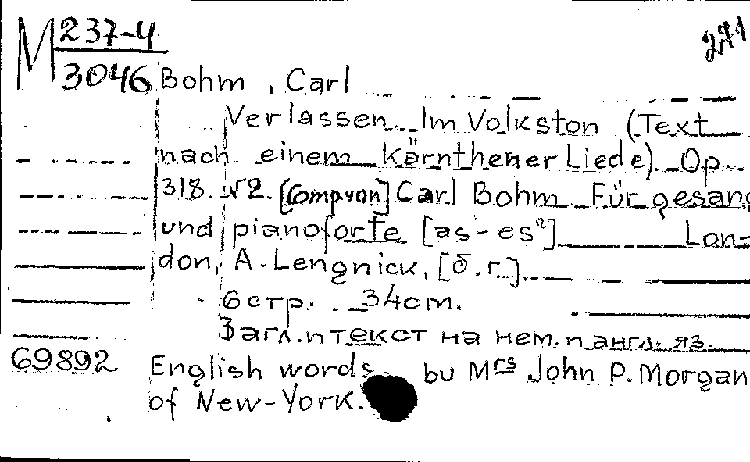 M 237-4
3046
241
Bohm, Carl
Verlassen. Im Volkston (Text
nach einem Kärnthener Liede). Op.
318. №2. [Comp von] Carl Bohm. Für gesang
und pianoforte [as-es²] Lon-
don, A. Lengnick, [б.г.].
6 стр. 34 cm.
Загл. и текст на нем. и англ. яз.
69892
English words bu Mrs John P. Morgan
of New-York.